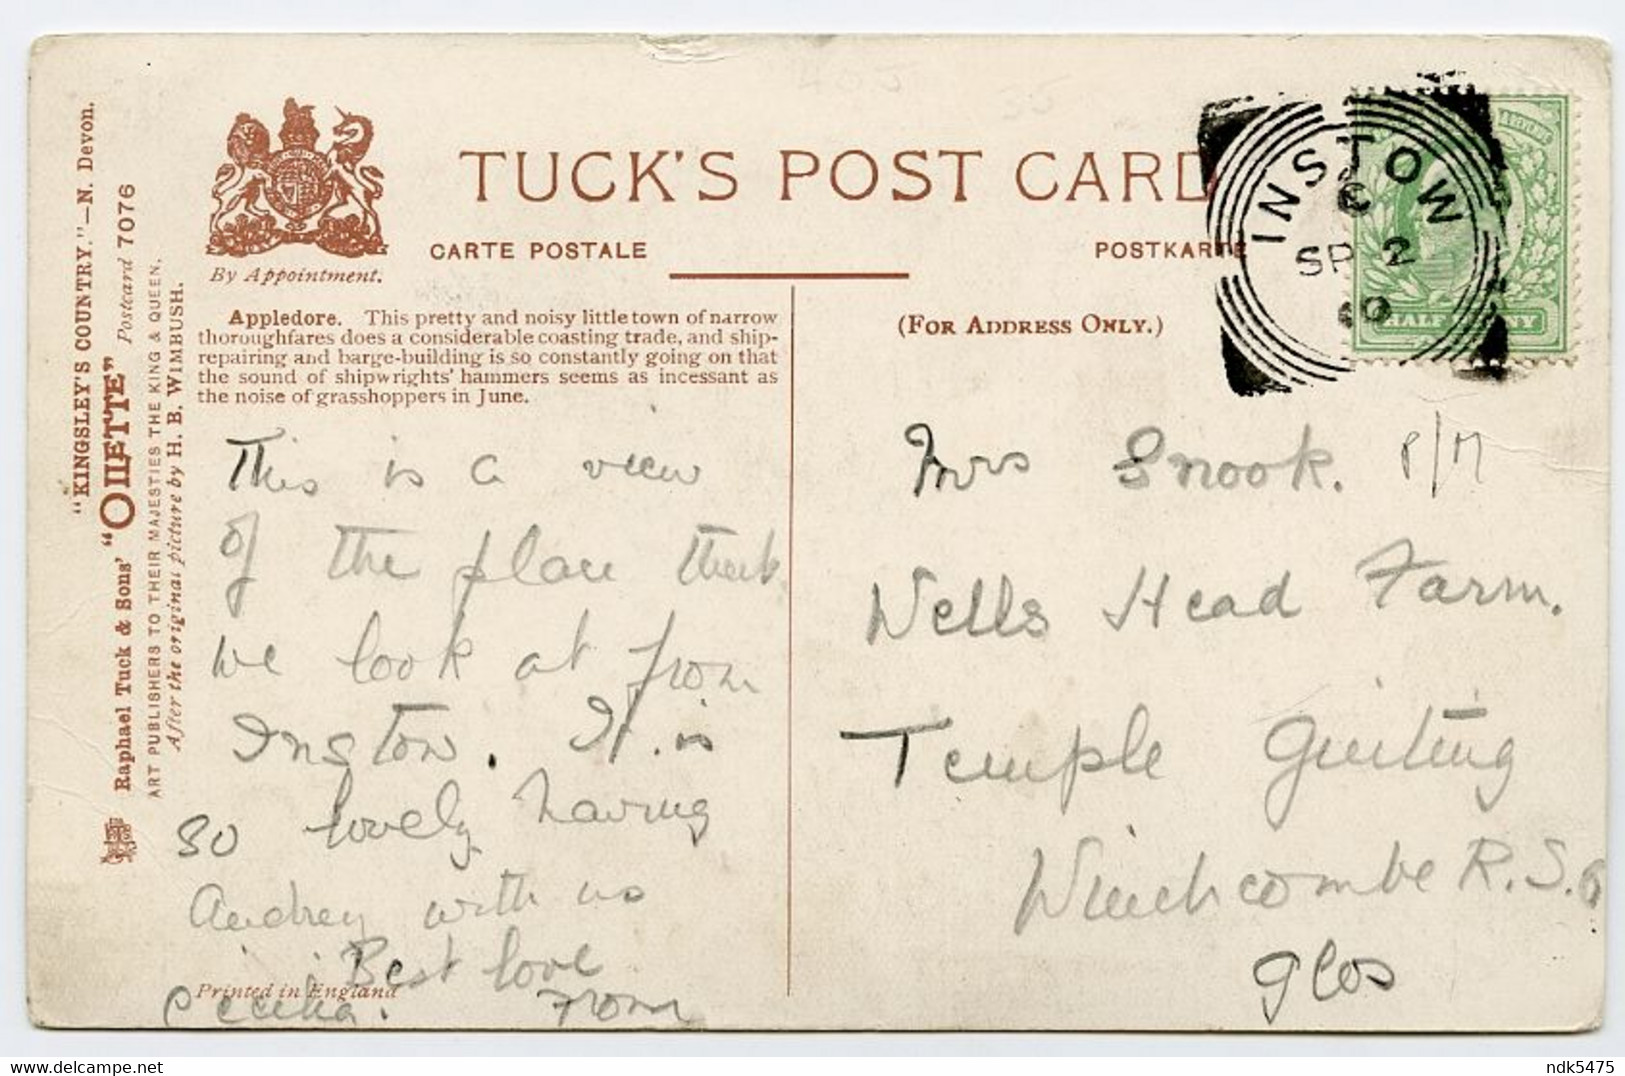 TUCK'S POST CARD
CARTE POSTALE
POSTKARTE
By Appointment.
"KINGSLEY'S COUNTRY."—N. Devon.
Raphael Tuck & Sons' "OILETTE" Postcard 7076
ART PUBLISHERS TO THEIR MAJESTIES THE KING & QUEEN.
After the original picture by H. B. WIMBUSH.
Appledore. This pretty and noisy little town of narrow
thoroughfares does a considerable coasting trade, and ship-
repairing and barge-building is so constantly going on that
the sound of shipwrights' hammers seems as incessant as
the noise of grasshoppers in June.
(FOR ADDRESS ONLY.)
INSTOW
SP 2
10
HALFPENNY
This is a view
of the place that
we look at from
Instow. It is
so lovely having
Audrey with us
Best love
from
Cecilia.
Printed in England
Mrs Snook. P/M
Wells Head Farm.
Temple Guiting
Winchcombe R.S.O
Glos
ndk5475